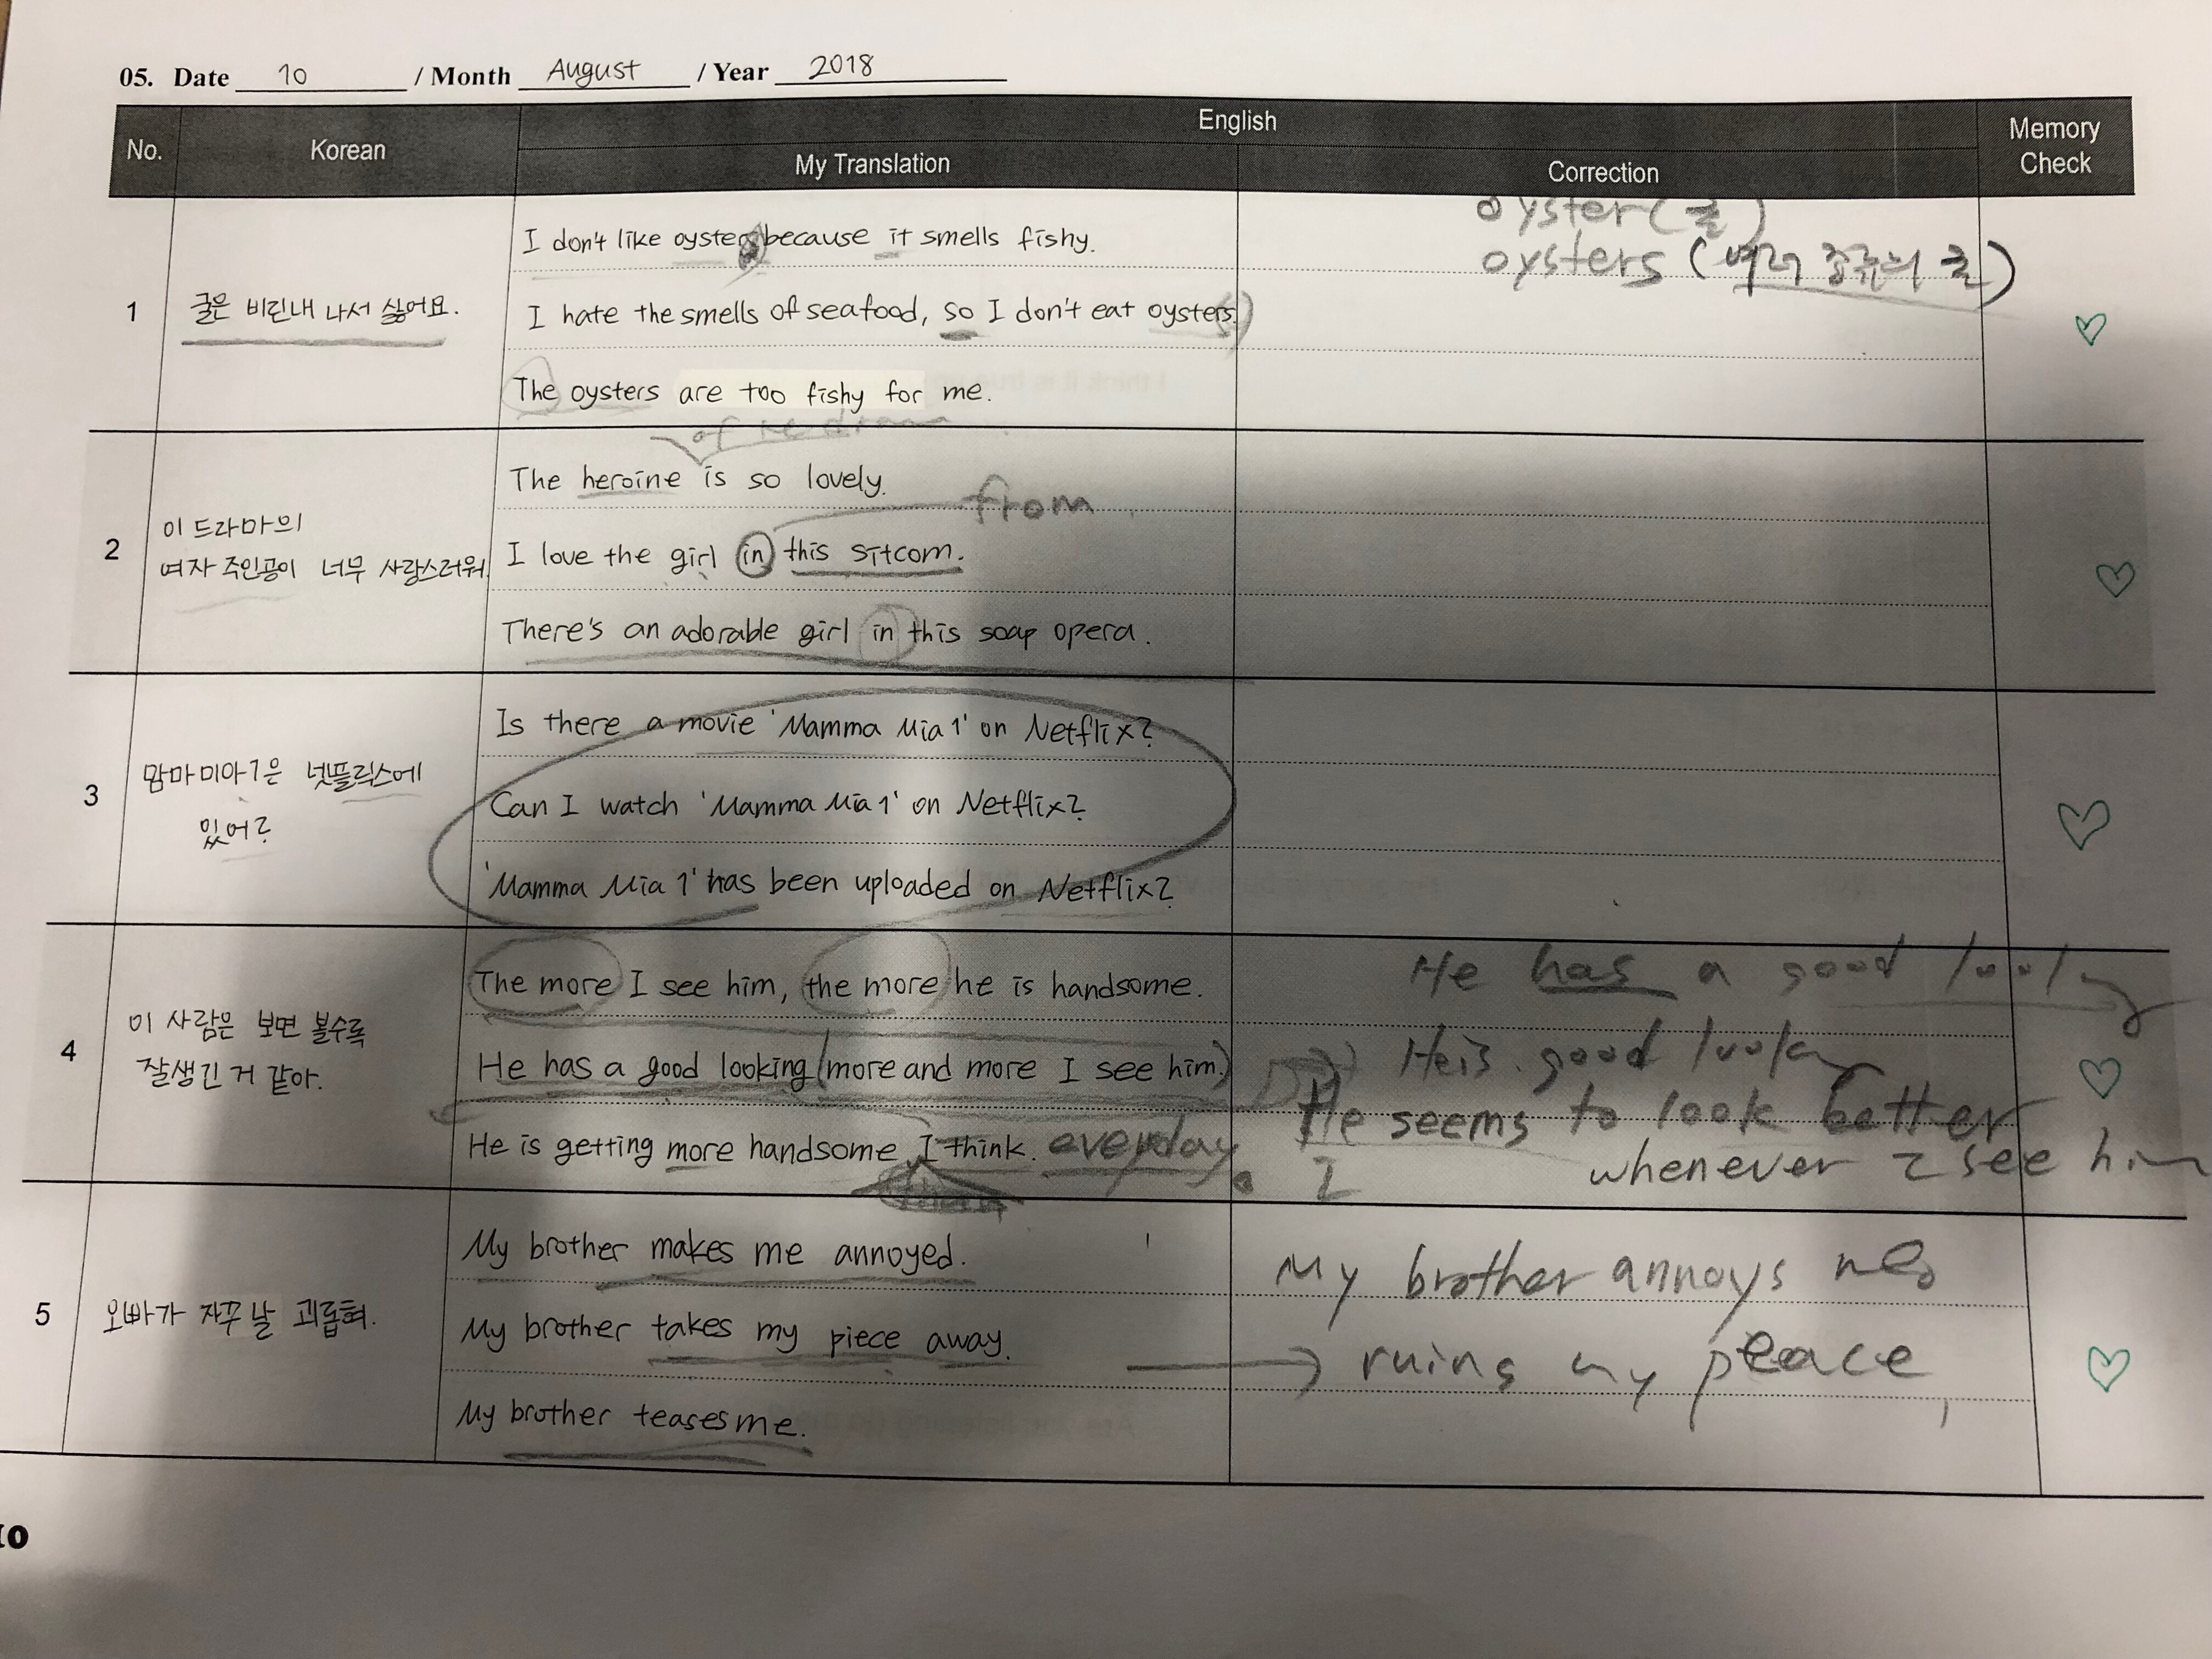 05. Date 10 / Month August / Year 2018
No. Korean English Memory Check
My Translation Correction
oyster (굴)
oysters (여러 종류의 굴)
1 굴은 비린내 나서 싫어요.
I don't like oyster because it smells fishy.
I hate the smells of seafood, so I don't eat oysters.
The oysters are too fishy for me.
2 이 드라마의
여자 주인공이 너무 사랑스러워.
of the drama
The heroine is so lovely.
from
I love the girl in this sitcom.
There's an adorable girl in this soap opera.
3 맘마미아1은 넷플릭스에
있어?
Is there a movie 'Mamma Mia 1' on Netflix?
Can I watch 'Mamma Mia 1' on Netflix?
'Mamma Mia 1' has been uploaded on Netflix?
4 이 사람은 보면 볼수록
잘생긴 거 같아.
The more I see him, the more he is handsome.
He has a good looking (more and more I see him.)
He is getting more handsome I think. everyday.
He has a good looking
He is good looking
He seems to look better
I whenever I see him
5 오빠가 자꾸 날 괴롭혀.
My brother makes me annoyed.
My brother takes my piece away.
My brother teases me.
My brother annoys me
ruins my peace
10